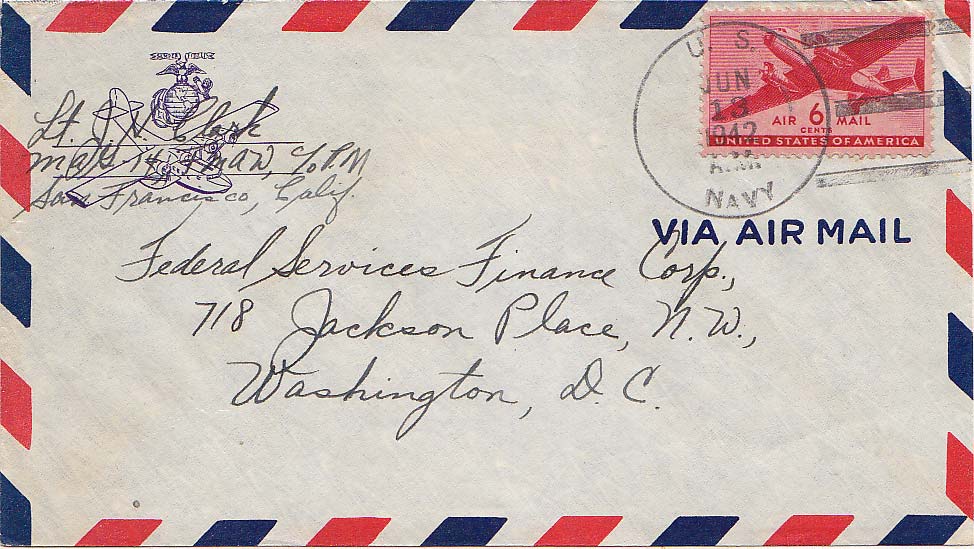 Lt. J. V. Clark
MAG 14, 1 MAW, c/o P.M
San Francisco, Calif.
U. S.
JUN
13
1942
A.M.
NAVY
AIR 6 MAIL
CENTS
UNITED STATES OF AMERICA
VIA AIR MAIL
Federal Services Finance Corp.,
718 Jackson Place, N.W.,
Washington, D.C.